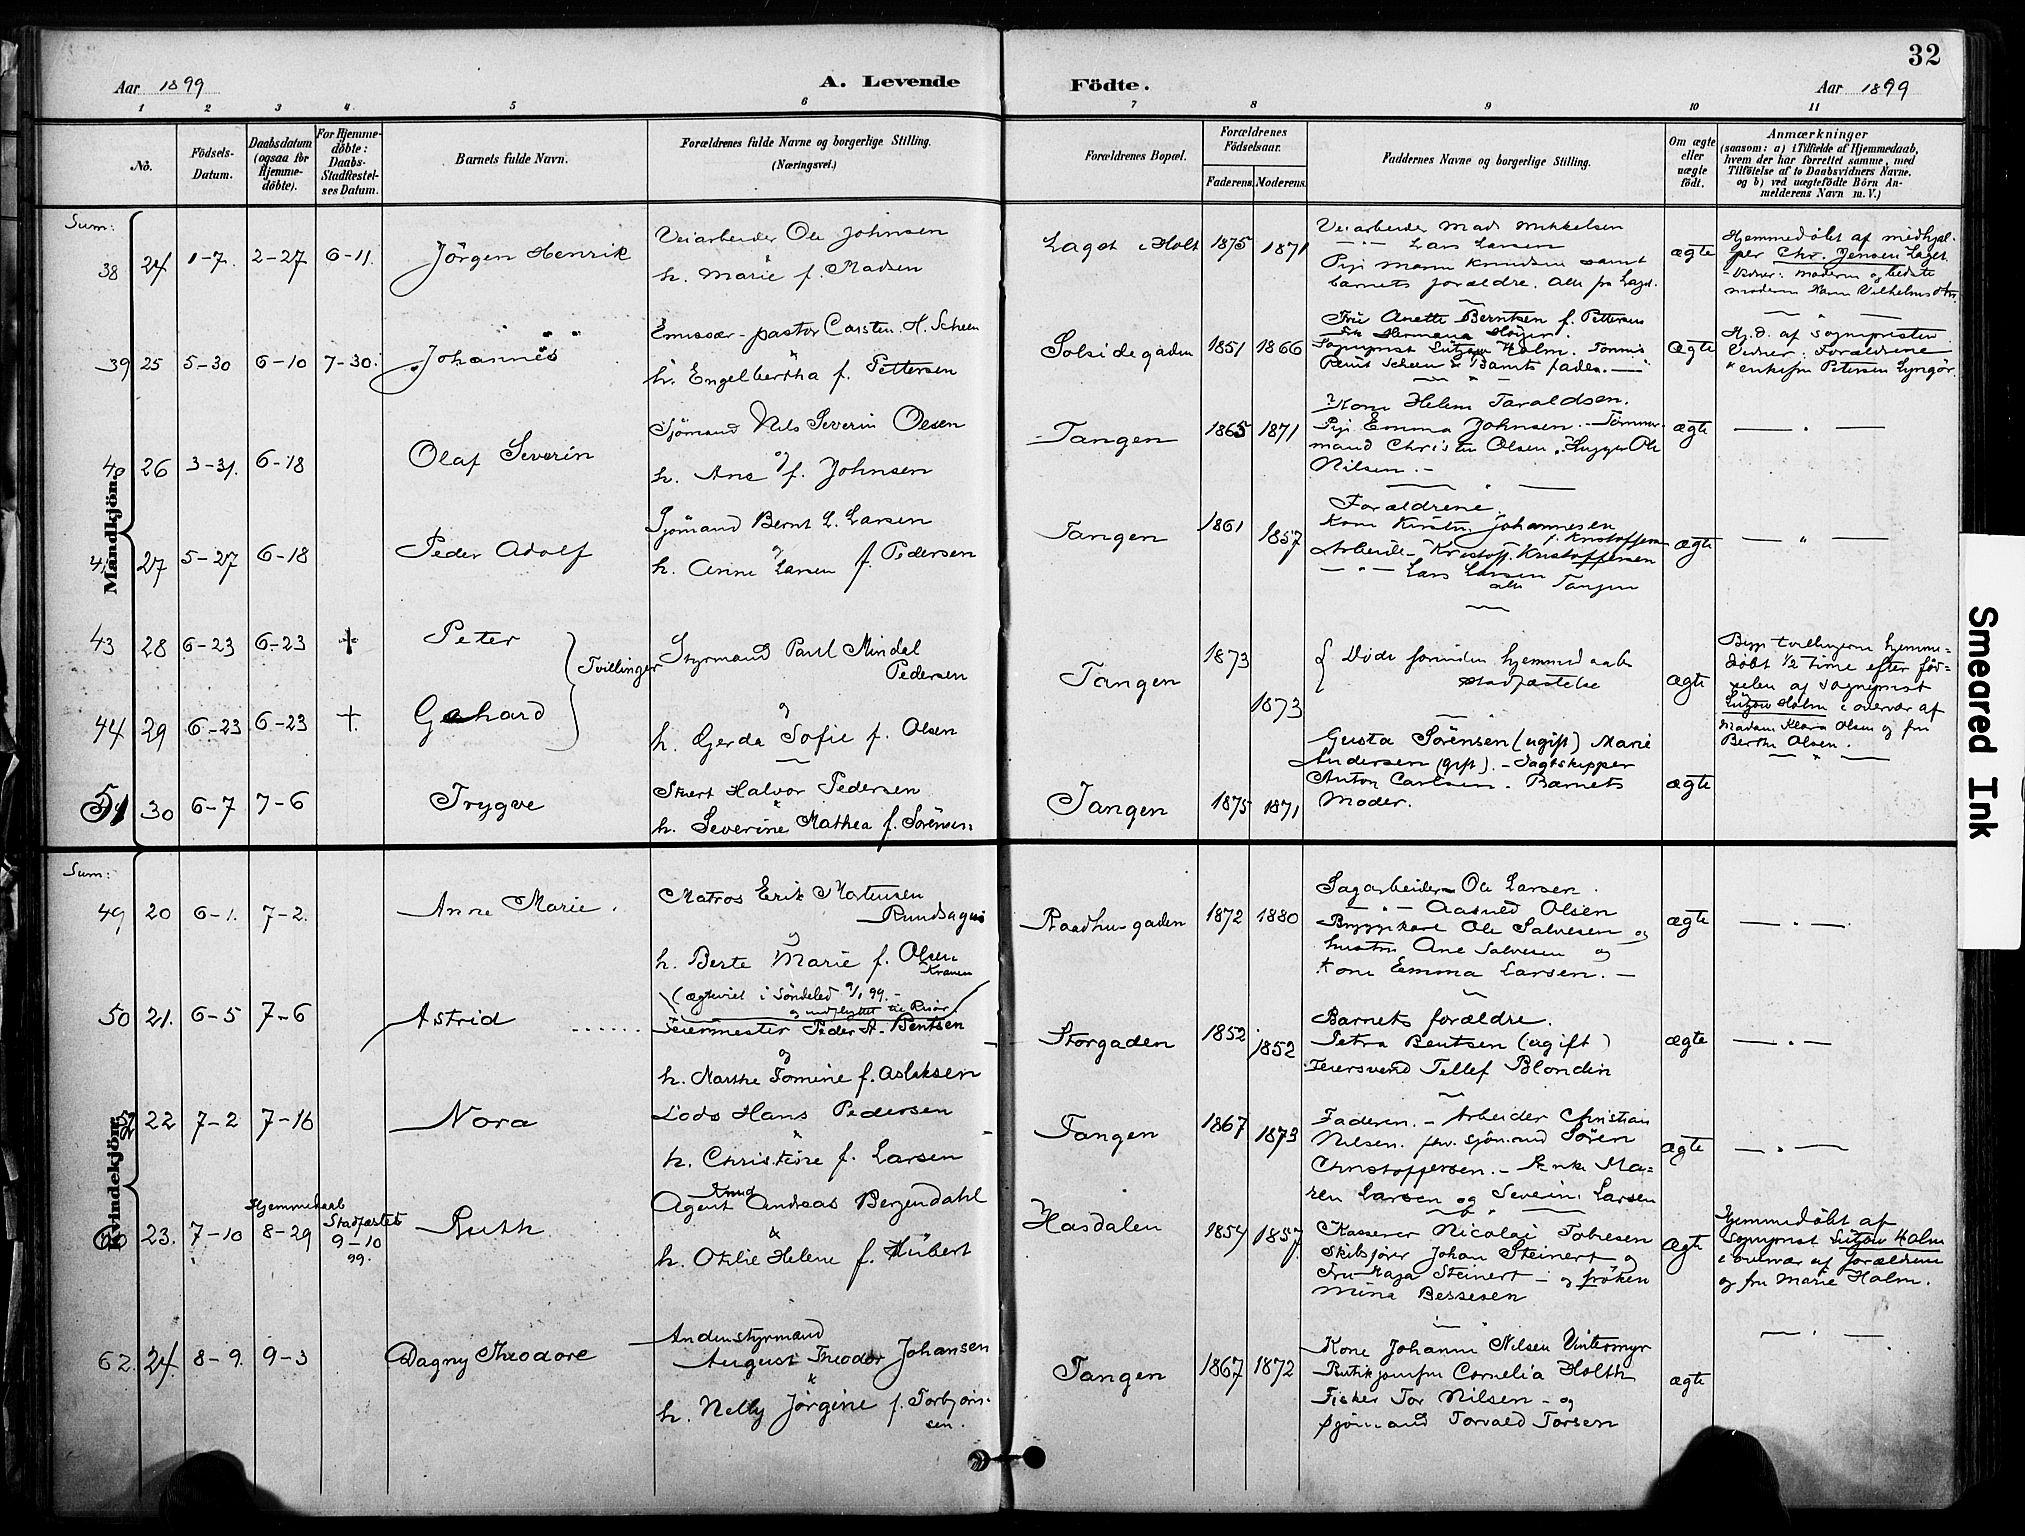 32
Aar 1899
A. Levende
Födte.
Aar 1899
1 2 3 4 5 6 7 8 9 10 11
No.
Födsels-
Datum.
Daabsdatum
(ogsaa for
Hjemme-
döbte).
For Hjemme-
döbte:
Daabs-
Stadfæstel-
ses Datum.
Barnets fulde Navn.
Forældrenes fulde Navne og borgerlige Stilling.
(Næringsvei.)
Forældrenes Bopæl.
Forældrenes
Födselsaar.
Faderens. Moderens.
Faddernes Navne og borgerlige Stilling.
Om ægte
eller
uægte
födt.
Anmærkninger
(saasom: a) i Tilfælde af Hjemmedaab,
hvem der har forrettet samme, med
Tilföielse af to Daabsvidners Navne.
og b) ved uægtefödte Börn An-
melderens Navn m.V.)
Sum:
Mandkjön.
38 24 1-7. 2-27 6-11. Jörgen Henrik
Veiarbeider Ole Johnsen
&
h. Marie f. Madsen
Laget i Holt 1875 1871
Veiarbeider Mads Mikkelsen
— " — Lars Larsen
Pige Maren Knudsen samt
barnets forældre. Alle fra Laget.
ægte
Hjemmedöbt af medhjæl-
per Chr. Jensen Laget.
39 25 5-30 6-10 7-30. Johannes
Emissær-pastor Carsten H. Scheen
&
h. Engelbertha f. Pettersen
Solsidegaden 1851 1866
Fru Anette Berntsen f. Pettersen
Sogneprest Lützow Holm.
ægte
Hj.d. af sognepresten
Vidner: Forældrene
& enkefru Petersen Lyngör.
40 26 3-31. 6-18 Olaf Severin
Sjömand Nils Severin Olsen
og
h. Ane f. Johnsen
Tangen 1865 1871
Kone Helene Taraldsen.
Pige Emma Johnsen. - Tömmer-
mand Christen Olsen. Hugger Ole
Nilsen. -
ægte — " —
41 27 5-27 6-18 Peder Adolf
Sjömand Bernt L. Larsen
og
h. Anne Larsen f. Pedersen
Tangen 1861 1857
Forældrene.
Kone Kirsten Johannesen
f. Kristoffersen
Arbeider Kristoff. Kristoffersen
— " — Lars Larsen
alle Tangen
ægte — " —
43 28 6-23 6-23 + Peter
Tvillinger
Styrmand Paul Mindal
Pedersen
44 29 6-23 6-23 +. Gehard
og
h. Gerda Sofie f. Olsen
Tangen 1873 1873
Döde forinden hjemmedaabs
stadfæstelse
ægte
Begge tvillingerne hjemme-
döbt 1/2 time efter föd-
selen af sogneprest
Lützow Holm i overvær af
Madam Klara Olsen og fru
Berthe Olsen.
51 30 6-7 7-6 Trygve
Stuert Halvor Pedersen
&
h. Severine Mathea f. Sörensen
Tangen 1875 1871
Gusta Sörensen (ugift) Marie
Andersen (gift). - Jagtskipper
Anton Carlsen. Barnets
Moder.
ægte
Sum:
Kvindekjön.
49 20 6-1. 7-2. Anne Marie.
Matros Erik Matiesen
Rundsagen
og
h. Berte Marie f. Olsen
Kranen
(ægteviet i Söndeled 9/1 99. -
og indflyttet til Risör)
Raadhusgaden 1872 1880
Sagarbeider Ole Larsen.
— " — Aasuld Olsen
Bryggekare Ole Salvesen og
hustru Ane Salvesen og
Kone Emma Larsen. -
ægte — " —
50 21. 6-5 7-6 Astrid
Feiermester Peder A. Bentsen
og
h. Marthe Tomine f. Aslaksen
Storgaden 1852 1852
Barnets forældre.
Petra Bentsen (ugift)
Feiersvend Tellef Blondin
ægte — " —
22 7-2 7-16 Nora
Lods Hans Pedersen
&
h. Christine f. Larsen
Tangen 1867 1873
Faderen. - Arbeider Christian
Nilsen. fhv. sjömand Sören
Christoffersen. - Enke Ma-
ren Larsen og Severin Larsen
ægte — " —
Hjemmedaab Stadfæstet
23. 7-10 8-29 9-10
99.
Ruth
Knud
Agent Andreas Bergendahl
&
h. Otilie Helene f. Hübert
Hasdalen 1854 1857
Kasserer Nicolai Tobiesen
Skibsförer Johan Steinert og
Fru Kaja Steinert - og fröken
Mina Bessesen
ægte
Hjemmedöbt af
sogneprest Lützow Holm
i overvær af forældrene
og fru Marie Holm.
62. 24. 8-9. 9-3 Dagny Theodore
Andenstyrmand
August Theodor Johansen
&
h. Nelly Jörgine f. Torbjörn-
sen.
Tangen 1867 1872
Kone Johanne Nilsen Vintermyr
Butikjomfru Cornelia Holth
Fisker Tor Nilsen - og
sjömand Torvald Torsen
ægte — " —
Smeared Ink